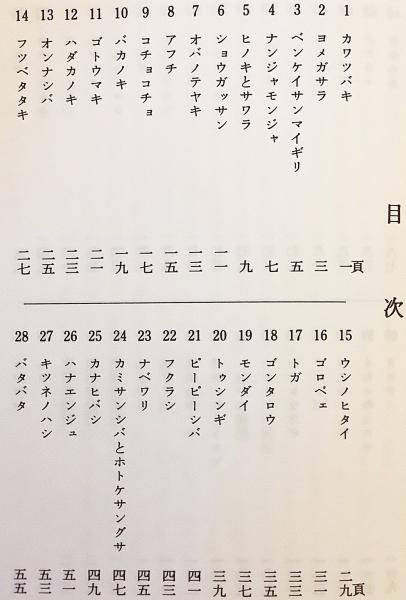 目次
1 カワツバキ 一頁
2 ヨメガサラ 三
3 ベンケイサンマイギリ 五
4 ナンジャモンジャ 七
5 ヒノキとサワラ 九
6 ショウガッサン 一一
7 オバノテヤキ 一三
8 アフチ 一五
9 コチョコチョ 一七
10 バカノキ 一九
11 ゴトウマキ 二一
12 ハダカノキ 二三
13 オンナシバ 二五
14 フツベタタキ 二七
15 ウシノヒタイ 二九頁
16 ゴロベェ 三一
17 トガ 三三
18 ゴンタロウ 三五
19 モンダイ 三七
20 トゥシンギ 三九
21 ピーピーシバ 四一
22 フクラシ 四三
23 ナベワリ 四五
24 カミサンシバとホトケサングサ 四七
25 カナヒバシ 四九
26 ハナエンジュ 五一
27 キツネノハシ 五三
28 バタバタ 五五